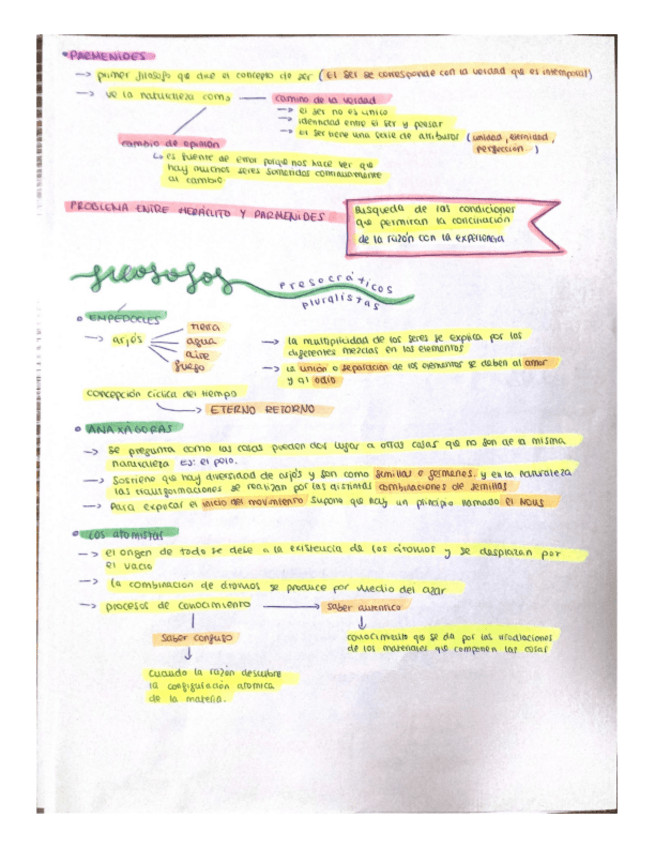 • PARMENIDES
→ primer filosofo que dice el concepto de ser (El ser se corresponde con la verdad que es intemporal)
→ ve la naturaleza como — camino de la verdad
→ el ser no es unico
→ identidad entre el ser y pensar
→ el ser tiene una serie de atributos (unidad, eternidad, perfección..)
cambio de opinión
↳ es fuente de error porque nos hace ver que
hay muchos seres sometidos continuamente
al cambio
PROBLEMA ENTRE HERÁCLITO Y PARMENIDES
Búsqueda de las condiciones
que permitan la conciliación
de la razón con la experiencia
filosofos
presocráticos
pluralistas
• EMPÉDOCLES
→ arjós
tierra
agua
aire
fuego
→ la multiplicidad de los seres se explica por las
diferentes mezclas en los elementos
→ La unión o separación de los elementos se deben al amor
y al odio
concepción cíclica del tiempo
→ ETERNO RETORNO
• ANAXÁGORAS
→ se pregunta como las cosas pueden dar lugar a otras cosas que no son de la misma
naturaleza Ej: el pelo.
→ Sostiene que hay diversidad de arjós y son como semillas o gérmenes. y en la naturaleza
las transformaciones se realizan por las distintas combinaciones de semillas
→ Para explicar el inicio del movimiento supone que hay un principio llamado el NOUS
• Los atomistas
→ el origen de todo se debe a la existencia de los átomos y se desplazan por
el vacío
→ la combinación de átomos se produce por medio del azar
→ procesos de conocimiento → saber autentico
saber confuso
conocimiento que se da por las irradiaciones
de los materiales que componen las cosas
cuando la razón descubre
la configuración atomica
de la materia.